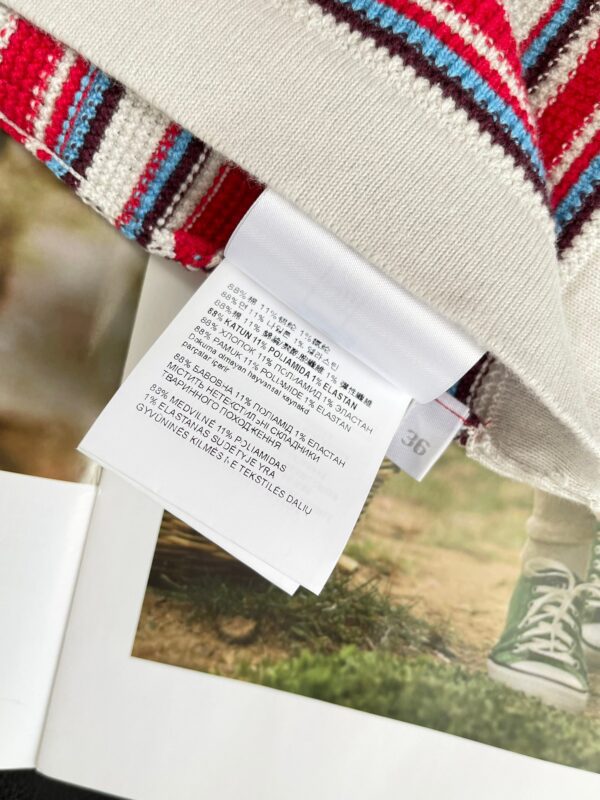 88% 棉 11% 锦纶 1% 氨纶
88% 면 11% 나일론 1% 엘라스틴
88% 棉 11% 1% 彈性纖維
88% KATUN 11% POLIAMIDA 1% ELASTAN
88% ХЛОПОК 11% ПОЛИАМИД 1% ЭЛАСТАН
88% PAMUK 11% POLİAMİDE 1% ELASTAN
Dokuma olmayan hayvansal kaynaklı
parçalar içerir
88% БАВОВНА 11% ПОЛІАМІД 1% ЕЛАСТАН
МІСТИТЬ НЕТЕКСТИЛЬНІ СКЛАДНИКИ
ТВАРИННОГО ПОХОДЖЕННЯ
88% MEDVILNĖ 11% POLIAMIDAS
1% ELASTANAS SUDĖTYJE YRA
GYVŪNINĖS KILMĖS NE TEKSTILĖS DALIŲ
36